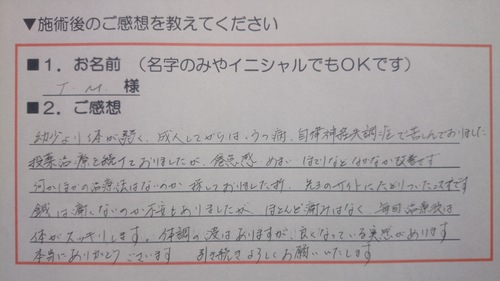 ▼施術後のご感想を教えてください
■1．お名前 （名字のみやイニシャルでもOKです）
T M 様
■2．ご感想
幼少より体が弱く、成人してからは、うつ病、自律神経失調症で苦しんでおりました
投薬治療を続けておりましたが、倦怠感 めまい ほてりなどなかなか改善せず
何かほかの治療法はないのか 探しておりました折、先生のサイトにたどりついた次第です
鍼は痛くないのか不安もありましたが、ほとんど痛みはなく 毎回治療後は
体がスッキリします。体調の波はありますが、良くなっている実感があります
本当にありがとうございます 引き続きよろしくお願いいたします